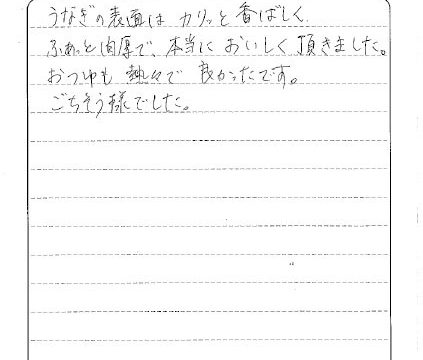 うなぎの表面は カリッと香ばしく
ふわっと肉厚で、本当に おいしく 頂きました。
おつゆも 熱々で 良かったです。
ごちそう様でした。